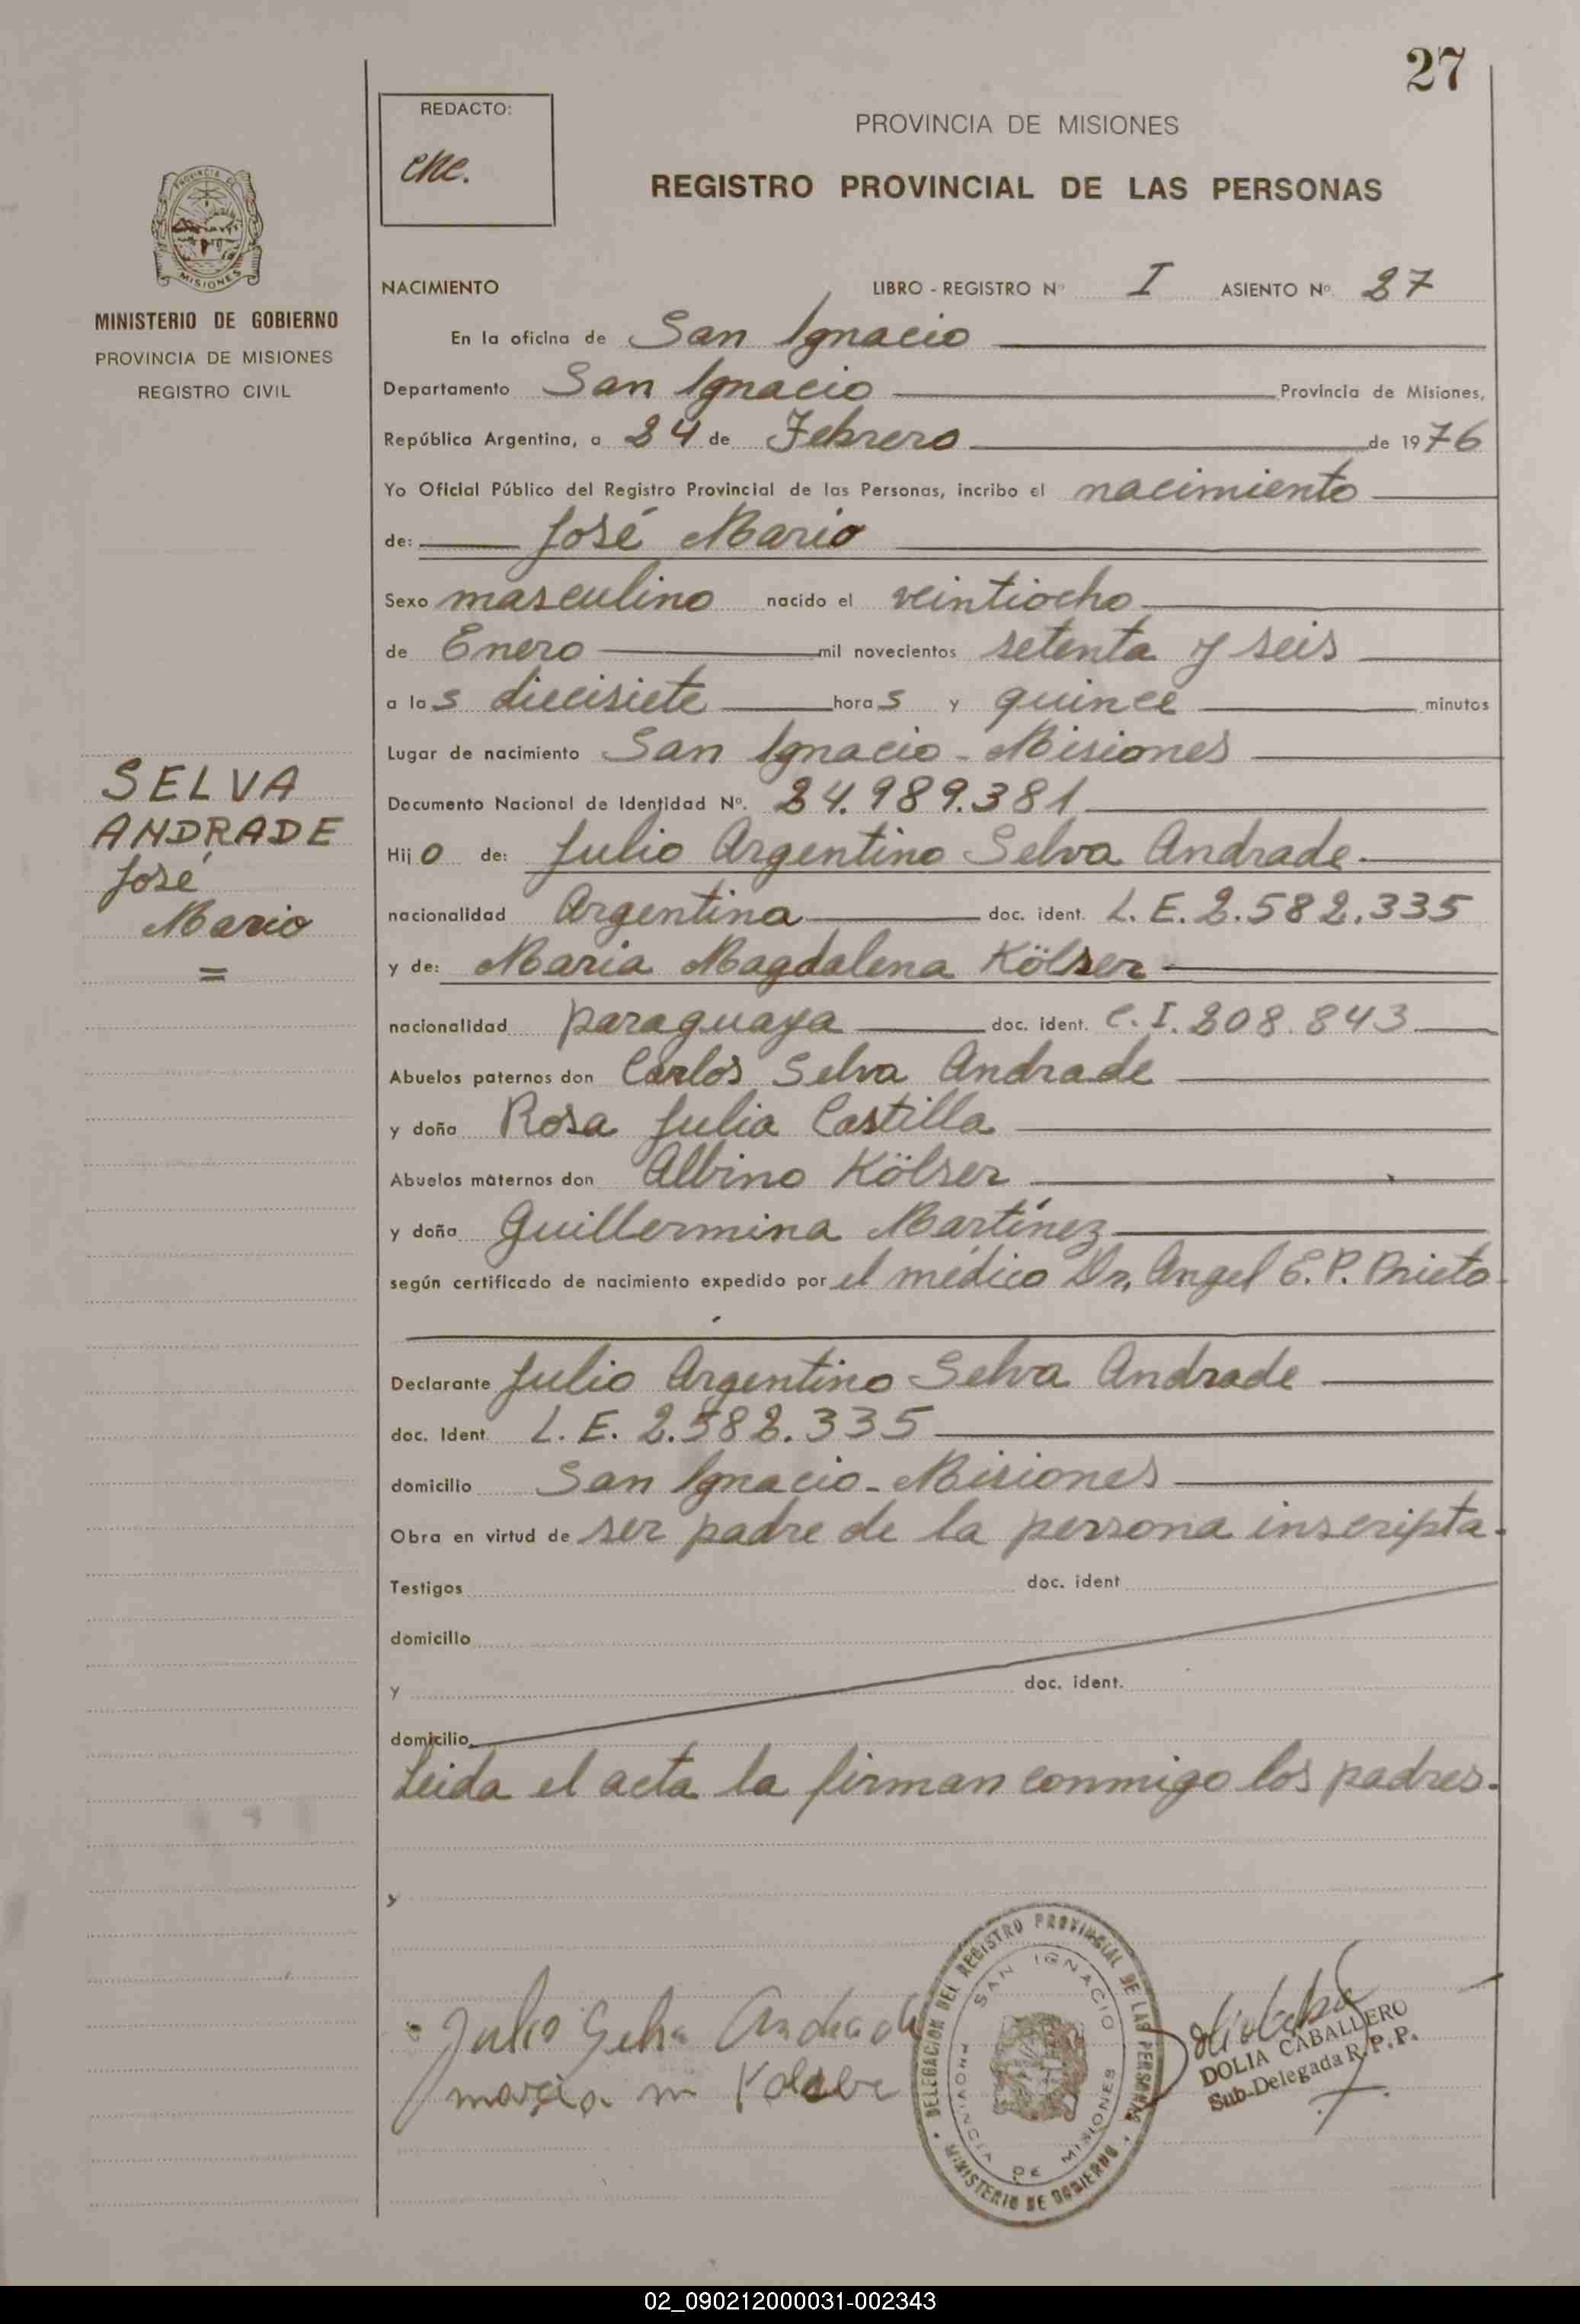 27
REDACTO:
PROVINCIA DE MISIONES
REGISTRO PROVINCIAL DE LAS PERSONAS
MISIONES
MINISTERIO DE GOBIERNO
PROVINCIA DE MISIONES
REGISTRO CIVIL
NACIMIENTO LIBRO - REGISTRO Nº I ASIENTO Nº 27
En la oficina de San Ignacio
Departamento San Ignacio Provincia de Misiones,
República Argentina, a 24 de Febrero de 1976
Yo Oficial Público del Registro Provincial de las Personas, incribo el nacimiento
de: José Mario
Sexo masculino nacido el veintiocho
de Enero mil novecientos setenta y seis
a las diecisiete horas y quince minutos
Lugar de nacimiento San Ignacio - Misiones
SELVA
ANDRADE
José
Mario
=
Documento Nacional de Identidad Nº. 24.989.381
Hijo de: Julio Argentino Selva Andrade
nacionalidad Argentina doc. ident. L. E. 2.582.335
y de: Maria Magdalena Kölser
nacionalidad paraguaya doc. ident. C. I. 208.843
Abuelos paternos don Carlos Selva Andrade
y doña Rosa Julia Castilla
Abuelos maternos don Albino Kölser
y doña Guillermina Martínez
según certificado de nacimiento expedido por el médico Dr. Angel E. P. Prieto.
Declarante Julio Argentino Selva Andrade
doc. Ident. L. E. 2.582.335
domicilio San Ignacio - Misiones
Obra en virtud de ser padre de la persona inscripta.
Testigos doc. ident
domicilio
y doc. ident.
domicilio
Leida el acta la firman conmigo los padres.
Julio Selva Andrade
maria m Kolser
DELEGACION DEL REGISTRO PROVINCIAL DE LAS PERSONAS
MINISTERIO DE GOBIERNO
SAN IGNACIO
PROVINCIA DE MISIONES
DOLIA CABALLERO
Sub-Delegada R.P.P.
02_090212000031-002343